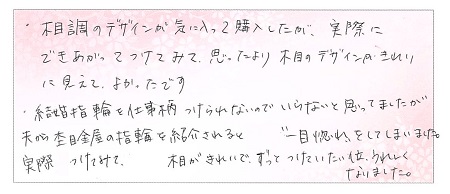 ・木目調のデザインが気に入って購入したが、実際に
できあがってつけてみて、思ったより木目のデザインがきれい
に見えて、よかったです
・結婚指輪を仕事柄つけられないのでいらないと思ってましたが
夫から杢目金屋の指輪を紹介されると　"一目惚れ"をしてしまいました。
実際　つけてみて、　木目がきれいで、ずっとつけていたい位、うれしく
なりました。